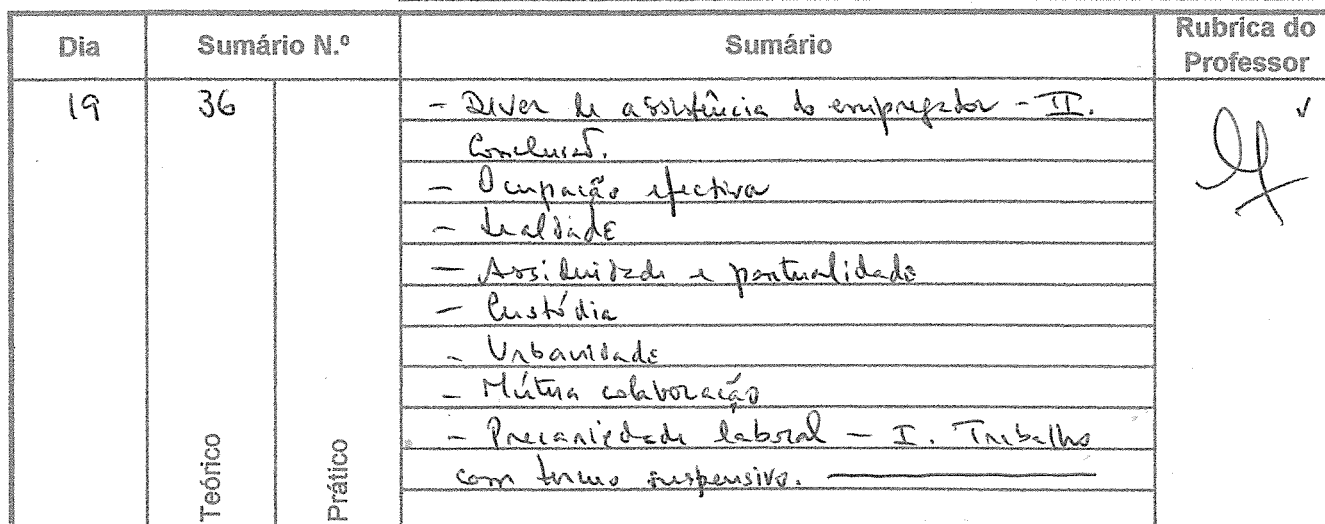 Dia Sumário N.º Sumário Rubrica do Professor
19 36 - Dever de assistência do empregador - II.
Conclusão.
- Ocupação efectiva
- Lealdade
- Assiduidade e pontualidade
- Custódia
- Urbanidade
- Mútua colaboração
- Precariedade laboral - I. Trabalho
com termo suspensivo.
Teórico
Prático